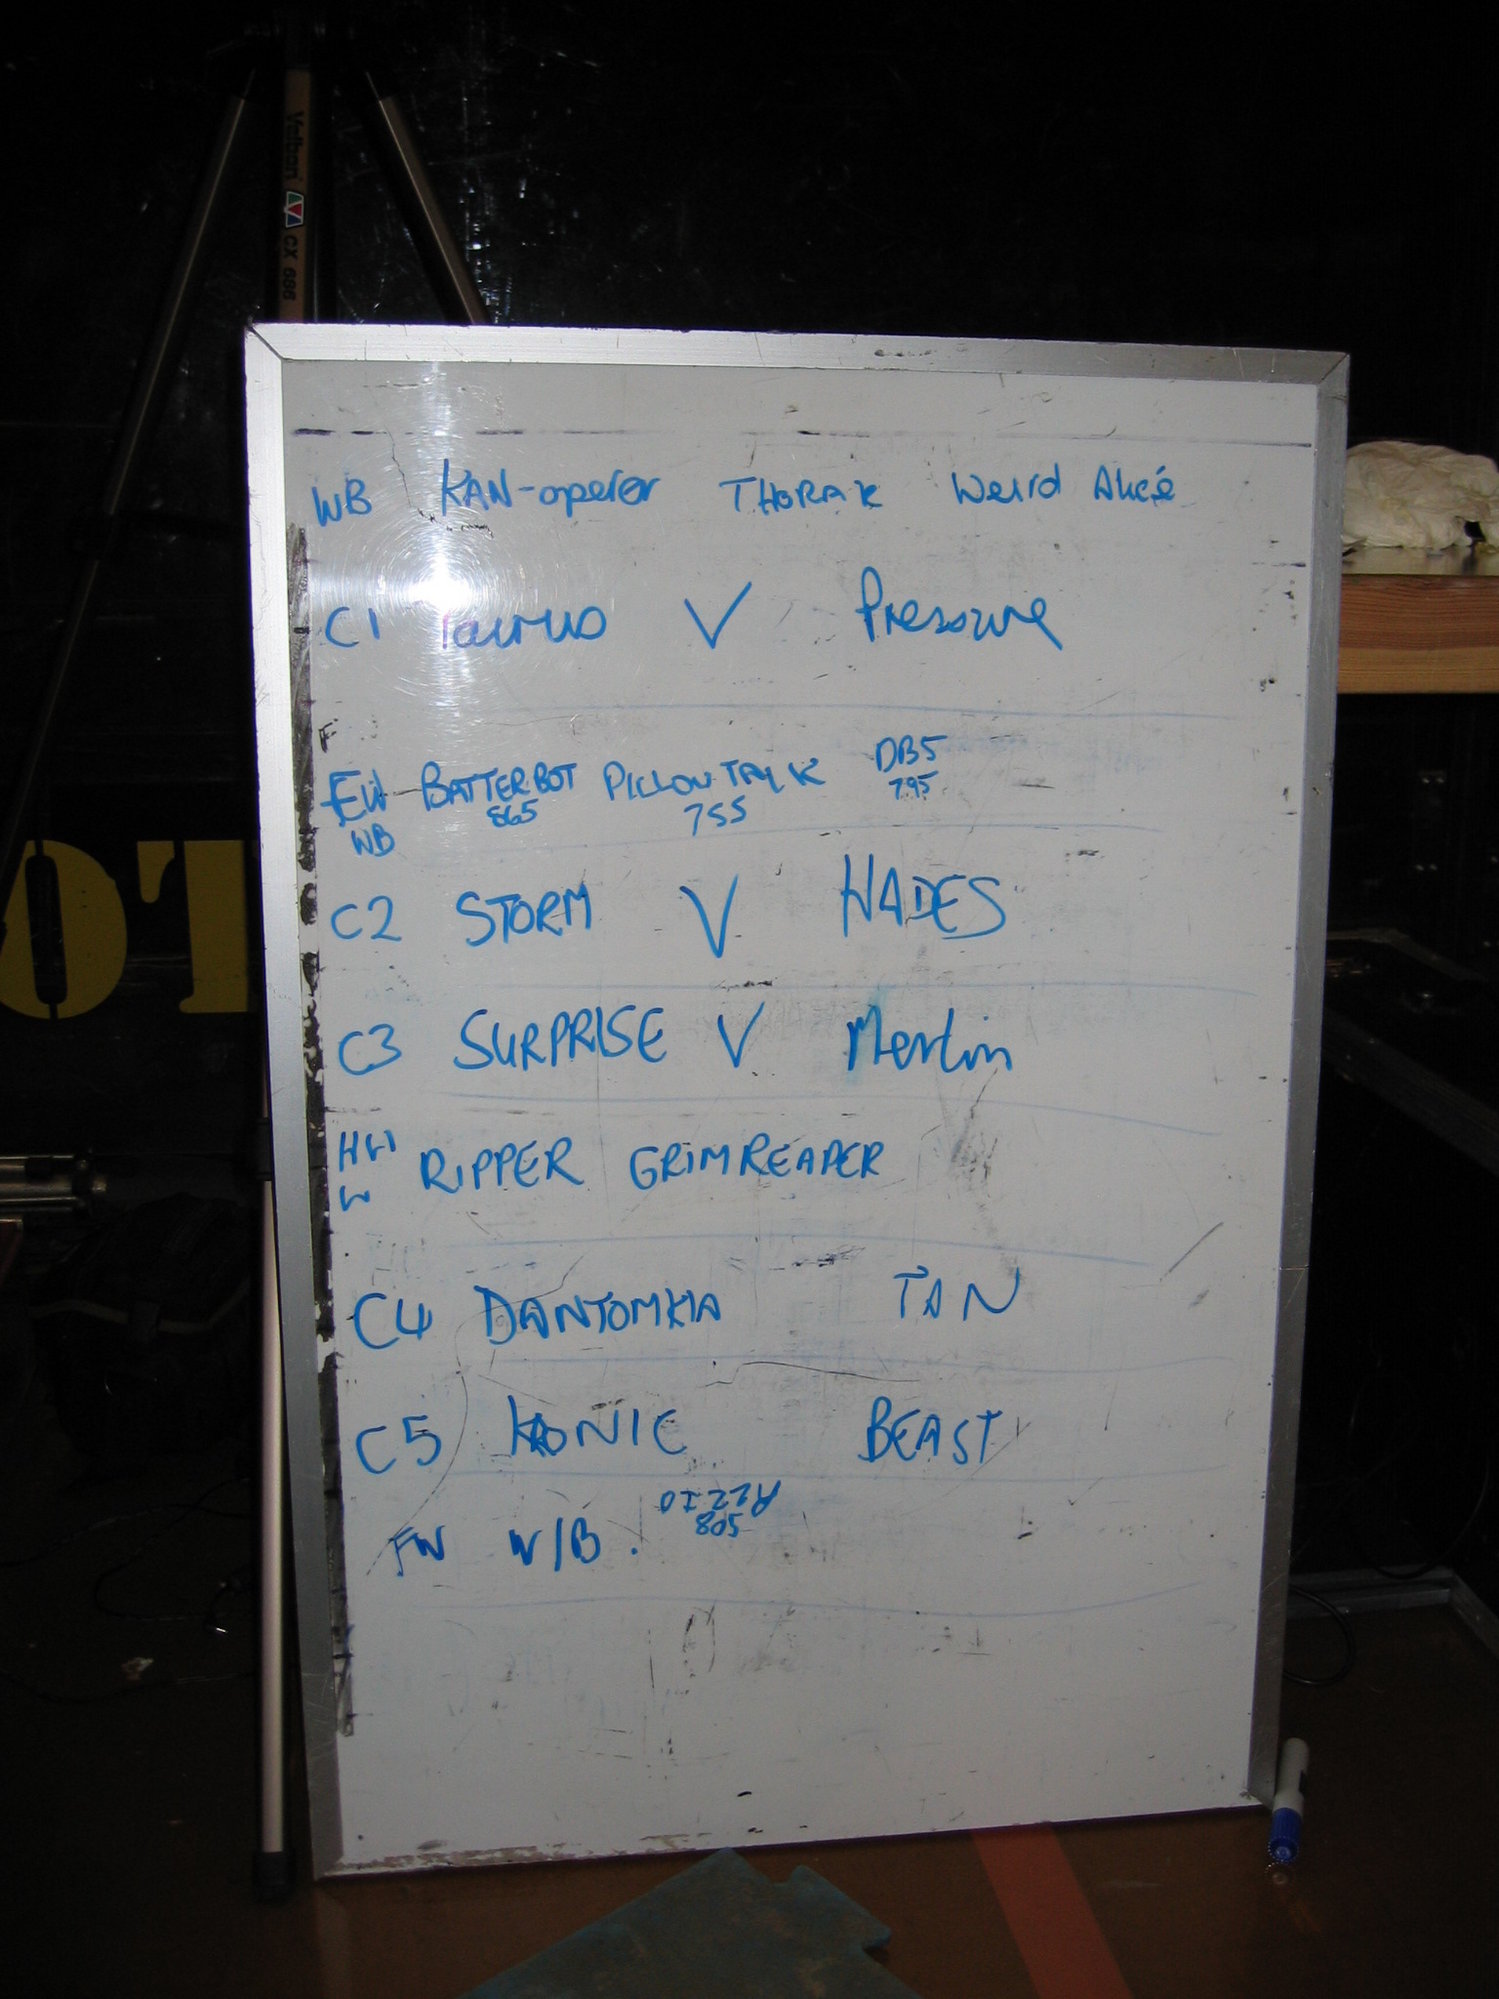 Velbon CX 686
WB KAN-opener THORAK Weird Alice
C1 Taurus V Pressure
F
FW BATTERBOT PILLOW TALK DB5
865 755 795
WB
C2 STORM V HADES
OT
C3 SURPRISE V Merlin
HW RIPPER GRIMREAPER
W
C4 DANTOMKIA TAN
C5 KONIC BEAST
FW W/B.
805